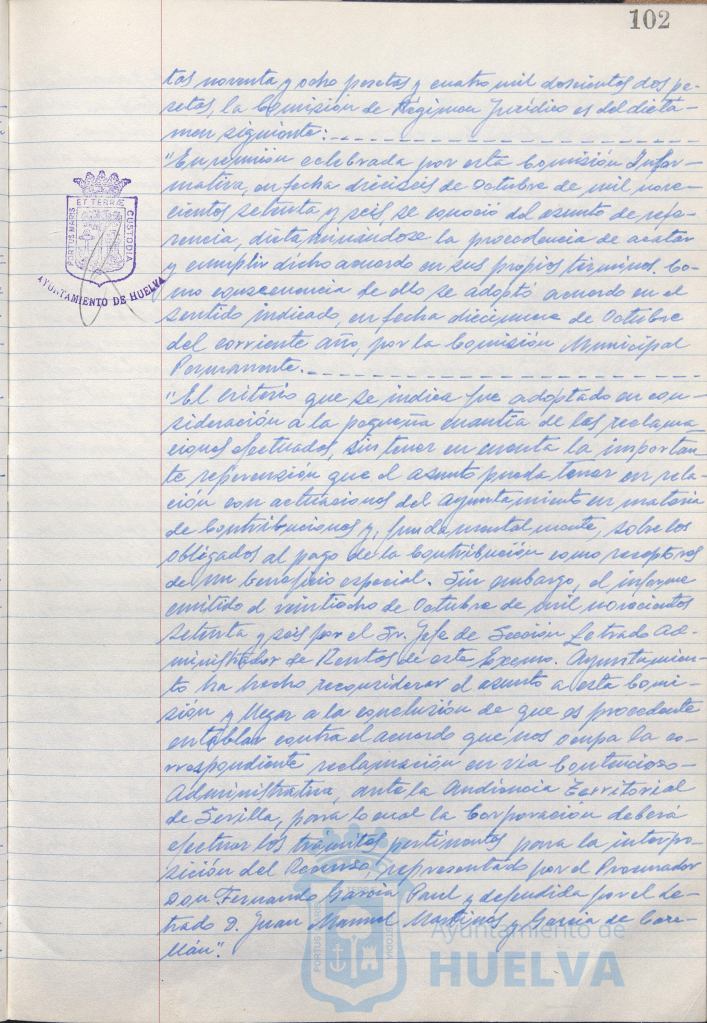 102
tas noventa y ocho pesetas y cuatro mil doscientas dos pe-
setas, la Comisión de Régimen Jurídico es del dicta-
men siguiente:
"En reunión celebrada por esta Comisión Infor-
mativa, en fecha dieciséis de Octubre de mil nove-
cientos setenta y seis, se conoció del asunto de refe-
rencia, dictaminándose la procedencia de acatar
y cumplir dicho acuerdo en sus propios términos. Co-
mo consecuencia de ello se adoptó acuerdo en el
sentido indicado, en fecha diecinueve de Octubre
del corriente año, por la Comisión Municipal
Permanente.
"El criterio que se indica fue adoptado en con-
sideración a la pequeña cuantía de las reclama-
ciones efectuadas, sin tener en cuenta la importan-
te repercusión que el asunto pueda tener en rela-
ción con actuaciones del Ayuntamiento en materia
de Contribuciones y, fundamentalmente, sobre los
obligados al pago de la Contribución como receptores
de un beneficio especial. Sin embargo, el informe
emitido el veintiocho de Octubre de mil novecientos
setenta y seis por el Sr. Jefe de Sección Letrado Ad-
ministrador de Rentas de este Excmo. Ayuntamien-
to ha hecho reconsiderar el asunto a esta Comi-
sión y llegar a la conclusión de que es procedente
entablar contra el acuerdo que nos ocupa la co-
rrespondiente reclamación en vía Contencioso-
Administrativa, ante la Audiencia Territorial
de Sevilla, para lo cual la Corporación deberá
efectuar los trámites pertinentes para la interpo-
sición del Recurso, representado por el Procurador
Don Fernando García Paul y defendida por el Le-
trado D. Juan Manuel Martínez y García de
llán".
PORTUS MARIS ET TERRÆ CUSTODIA
AYUNTAMIENTO DE HUELVA
Ayuntamiento de
HUELVA